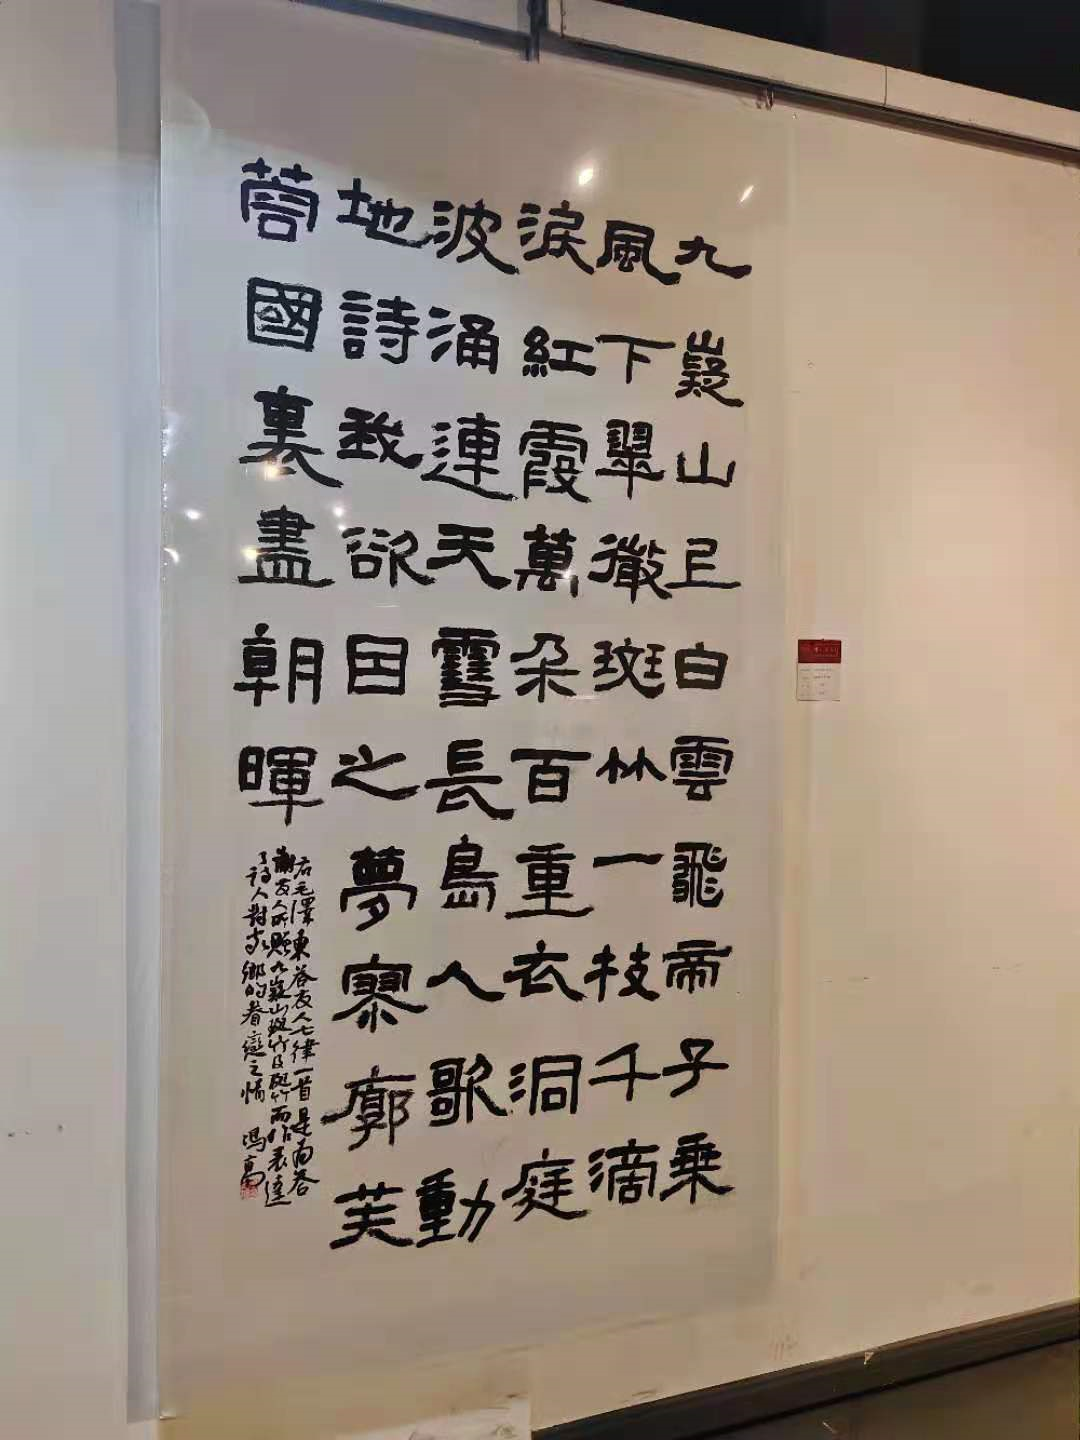 九嶷山上白雲飛帝子乘
風下翠微斑竹一枝千滴
淚紅霞萬朵百重衣洞庭
波涌連天雪長島人歌動
地詩我欲因之夢寥廓芙
蓉國裏盡朝暉
右毛澤東答友人七律一首是為答
謝友人所贈九嶷山斑竹而作表達
了詩人對家鄉的眷戀之情